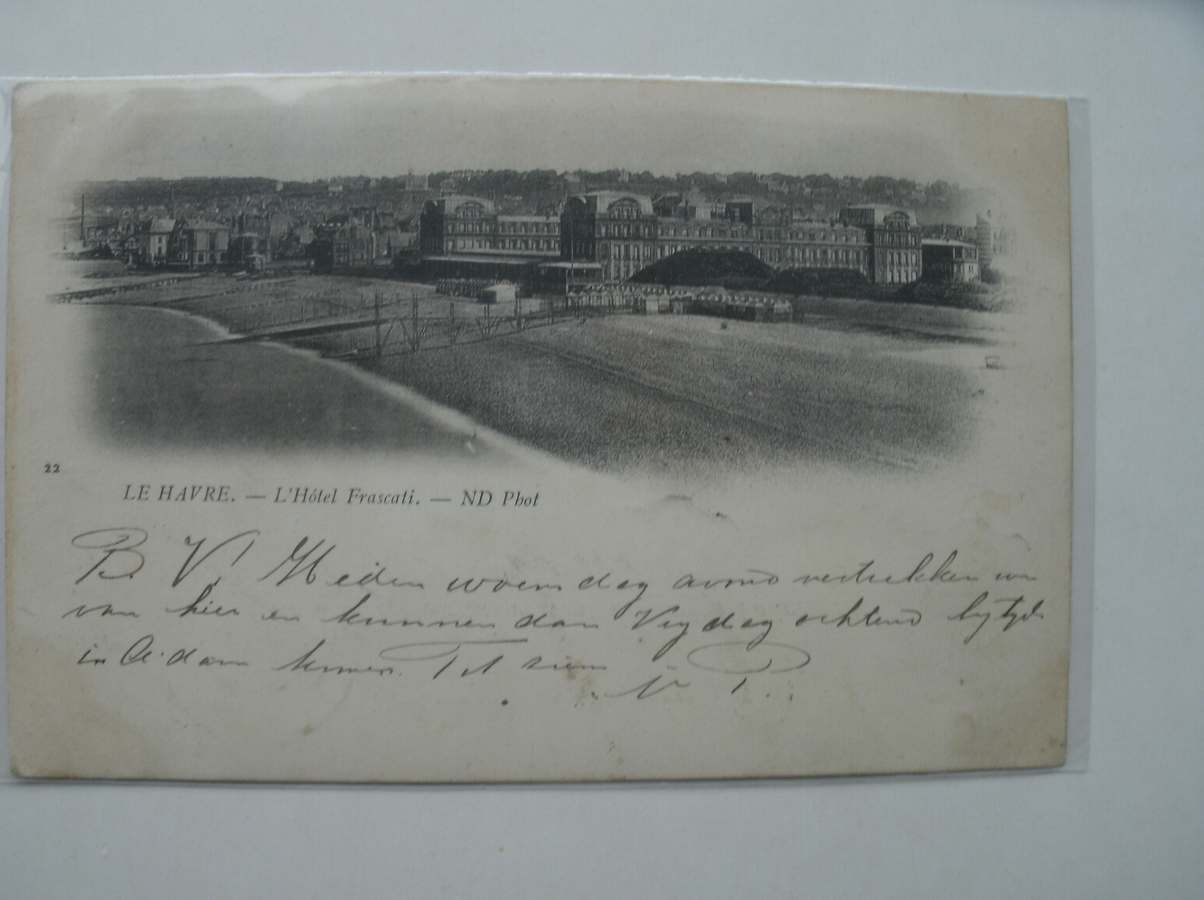 22
LE HAVRE. — L'Hôtel Frascati. — ND Phot
B. V! Heden woensdag avond vertrekken we
van hier en kunnen dan Vrydag ochtend bytyds
in A'dam komen. Tot ziens
N P.